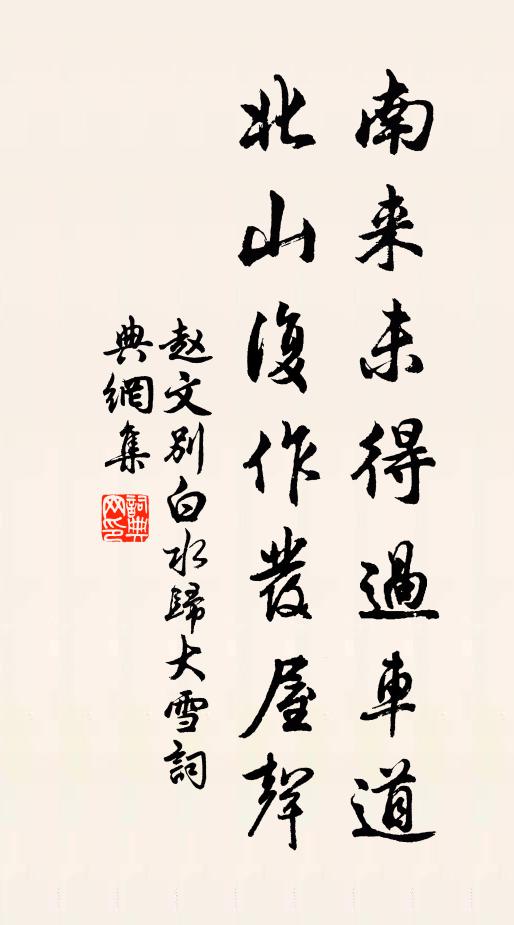 南来未得過車道
北山復作發屋聲
赵文別白水歸大雪詞
典網集
詞典
网印